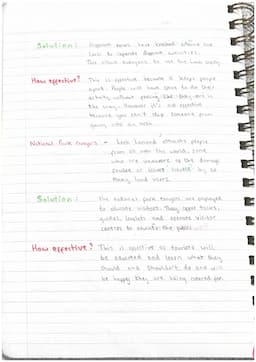 Solution: Different areas have been zoned off and
used to separate different activities.
This allows everyone to use the lake safely.
How effective? This is effective because it keeps people
apart. People will have space to do their
activity without feeling like they are in
the way. However it's not effective
because you can't stop someone from
going into an area.
National Park Rangers - Lake attracts people
from all over the world, some
who are unaware of the damage
caused or issues by so
many land users.
Solution: The national park rangers are employed
to educate visitors. They offer talks,
guides, leaflets and operate visitor
centres to educate the public.
How effective? This is effective as tourists will
be educated and learn what they
should and shouldn't do and will
be happy they are being cared for.